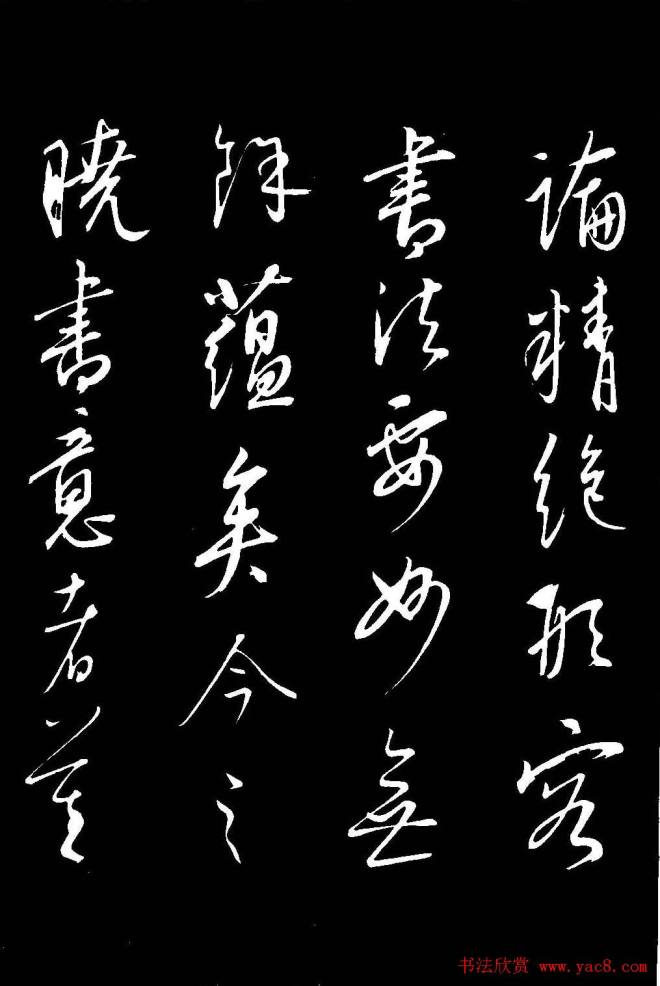 論精絶形容
書法要妙無
餘蘊矣今之
曉書意者莫
书法欣赏 www.yac8.com